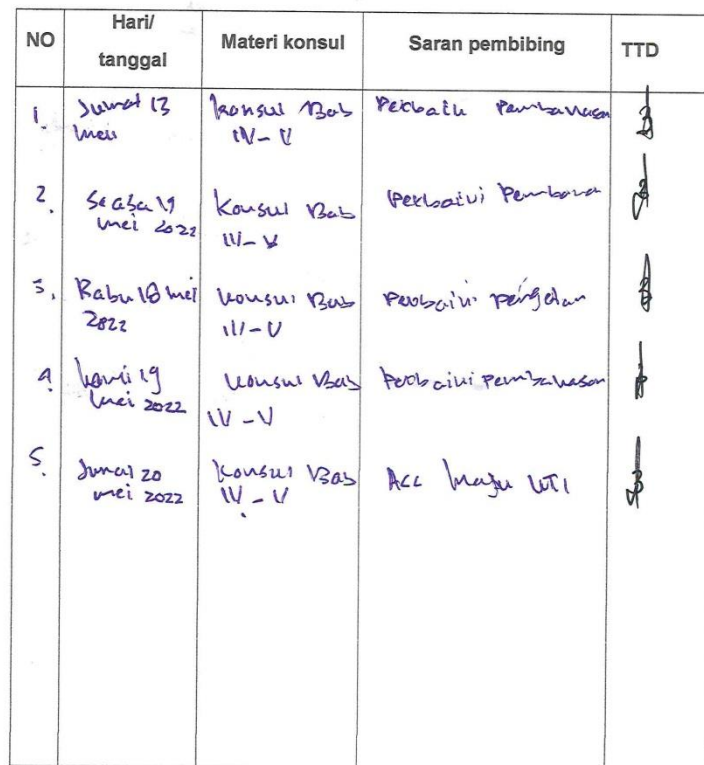 NO Hari/ tanggal Materi konsul Saran pembibing TTD
1. Jumat 13 mei konsul Bab IV-V Perbaiki Pembahasan
2. 2022 Konsul Bab Perbaiki
3. Rabu 18 mei 2022 konsul Bab III-V Perbaiki
4 kamis 19 mei 2022 konsul Bab IV-V Perbaiki pembahasan
5. Jumat 20 mei 2022 konsul Bab IV-V Acc Maju